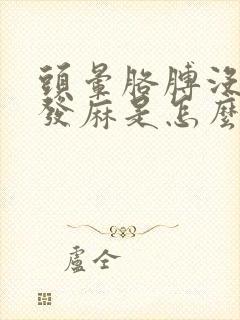 頭暈胳膊沒
發麻是怎麼
盧仝